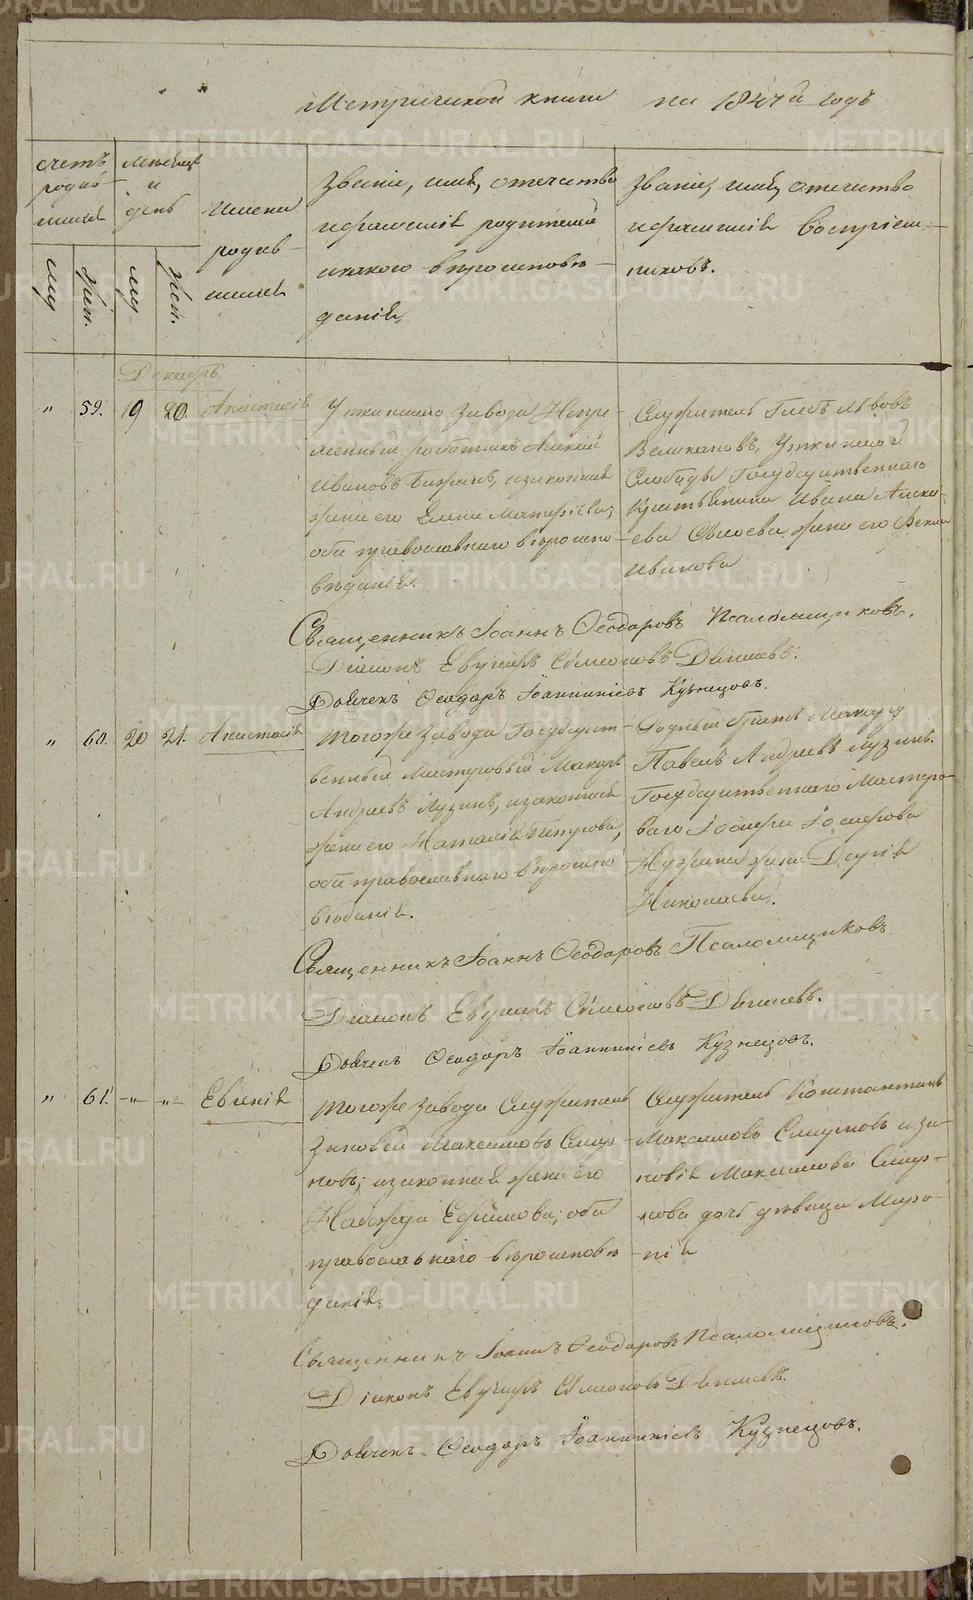 Метрической книги на 1847й годъ
счетъ родив- шихся
мѣсяцъ и день
Имена родив- шихся
Званіе, имя, отечество
и фамилія родителей
и какого вѣроисповѣ-
данія,
Званіе, имя, отечество
и фамилія воспріем-
никовъ.
му. жен. му. жен.
Декабрь
" 59. 19 20. Анастасія
Уткинскаго завода Непре-
менный работникъ Алексей
Ивановъ и законная
жена его Елена
оба православнаго вѣроиспо-
вѣданія.
Служитель Глебъ Львовъ
Великановъ, Уткинской
Слободы Государственнаго
Крестьянина Ивана Алексе-
ева жена его Фекла
Иванова
Священникъ Іоаннъ Ѳеодоровъ Псаломщиковъ.
Діаконъ Евгеній Симеоновъ
Дьячекъ Ѳеодоръ Іоанникіевъ Кузнецовъ.
" 60. 20 21. Анастасія
Тогоже завода Государст-
венный Мастеровый Макаръ
Андреевъ Лузинъ, и законная
жена его Наталія Петрова,
оба православнаго вѣроиспо-
вѣданія.
Родный братъ Макару
Павелъ Андреевъ Лузинъ.
Государственнаго Мастеро-
ваго Іосифа Іосифова
жена Дарія
Николаева.
Священникъ Іоаннъ Ѳеодоровъ Псаломщиковъ
Діаконъ Евгеній Симеоновъ
Дьячекъ Ѳеодоръ Іоанникіевъ Кузнецовъ.
" 61. -"- -"- Евгенія
Тогоже завода Служитель
Зиновей Максимовъ Смир-
новъ; и законная жена его
Надежда Ефимова; оба
православнаго вѣроисповѣ-
данія.
Служитель Константинъ
Максимовъ Смирновъ и Зи-
новія Максимова Смир-
нова дочь девица Мар-
ія
Священникъ Іоаннъ Ѳеодоровъ Псаломщиковъ.
Діаконъ Евгеній Симеоновъ
Дьячекъ Ѳеодоръ Іоанникіевъ Кузнецовъ.
METRIKI.GASO-URAL.RU